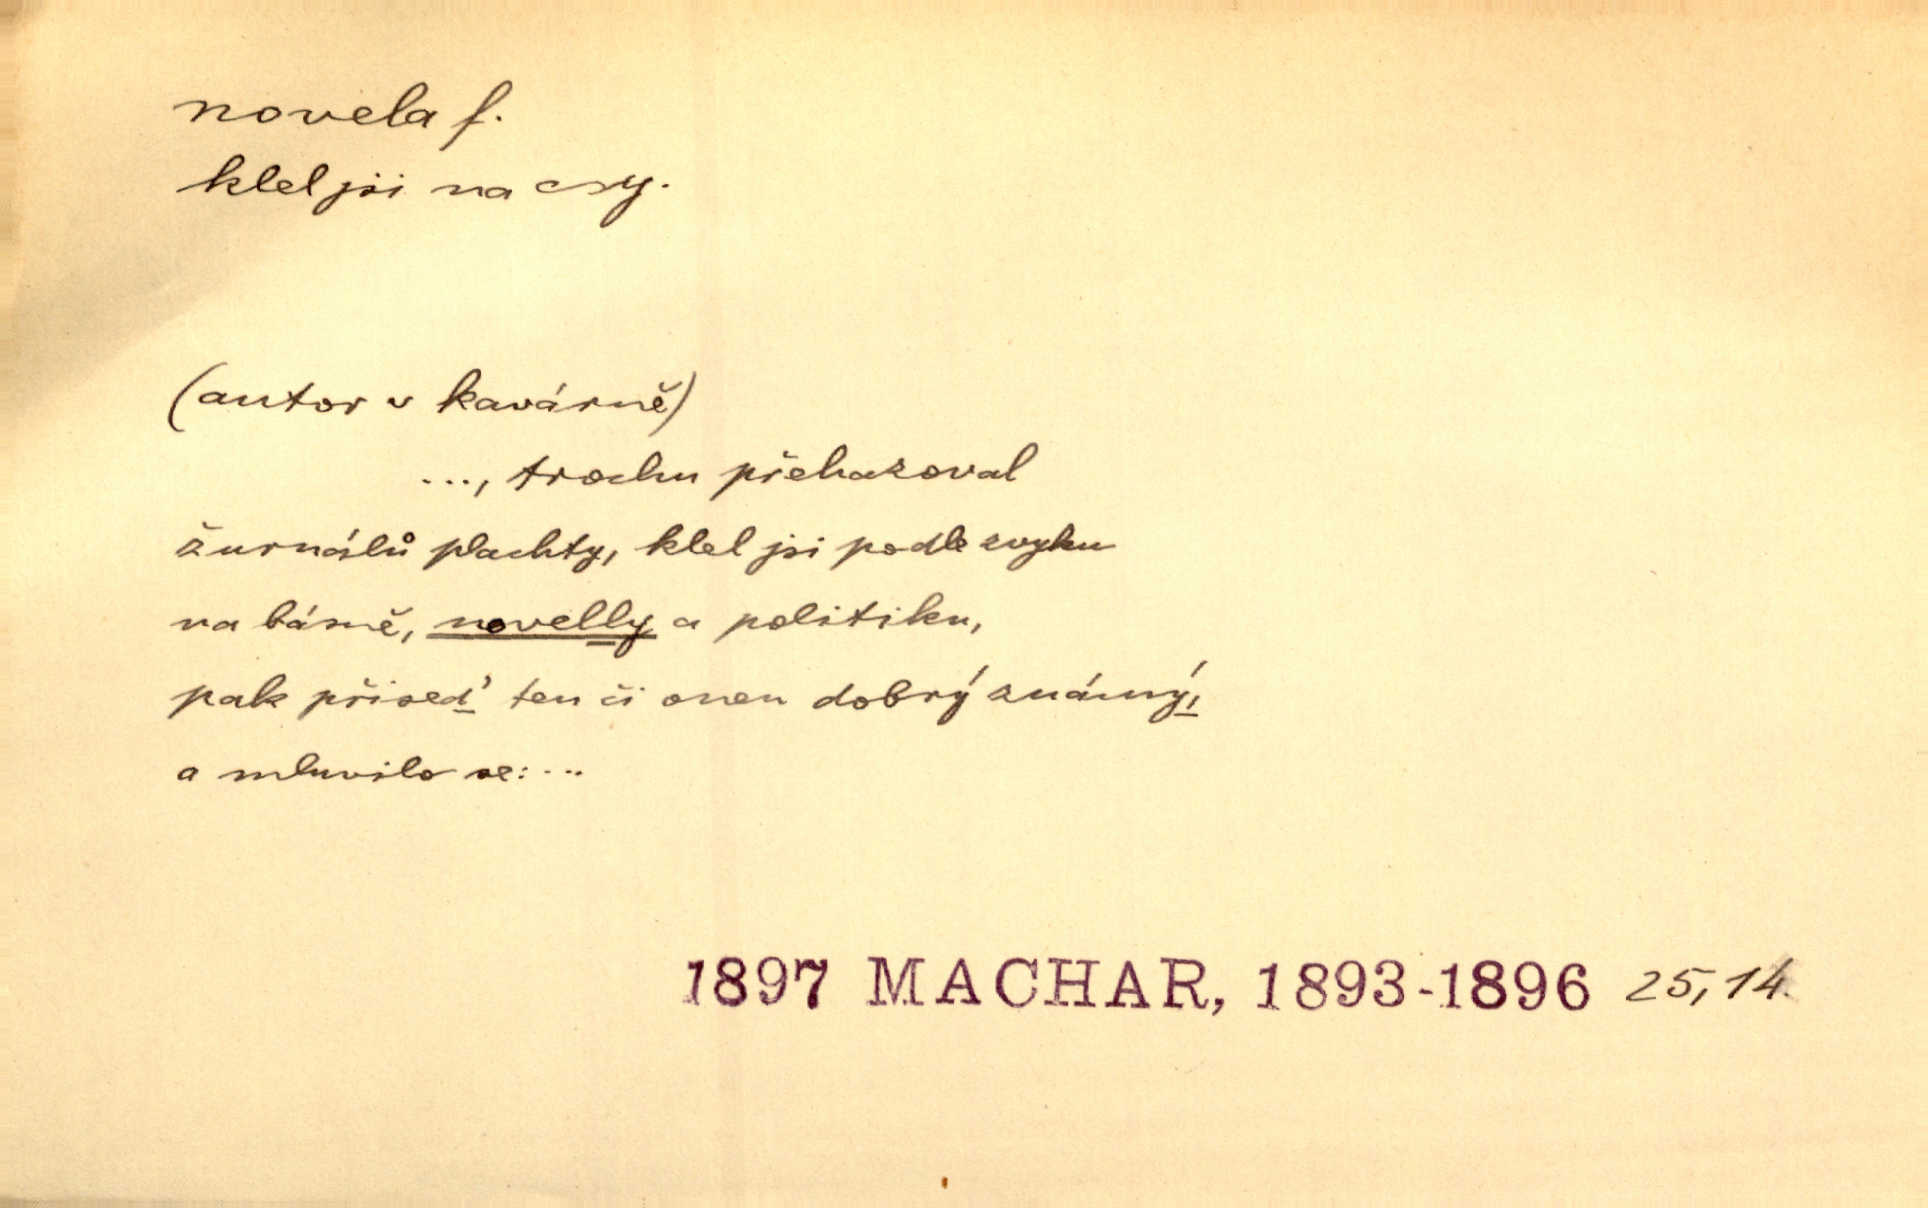 novela f.
klel jsi na csy.
(autor v kavárně)
..., trochu přehazoval
žurnálů plachty, klel jsi podle zvyku
na básně, novelly a politiku,
pak přiseď ten či onen dobrý známý,
a mluvilo se: ...
1897 MACHAR, 1893-1896 25,14.